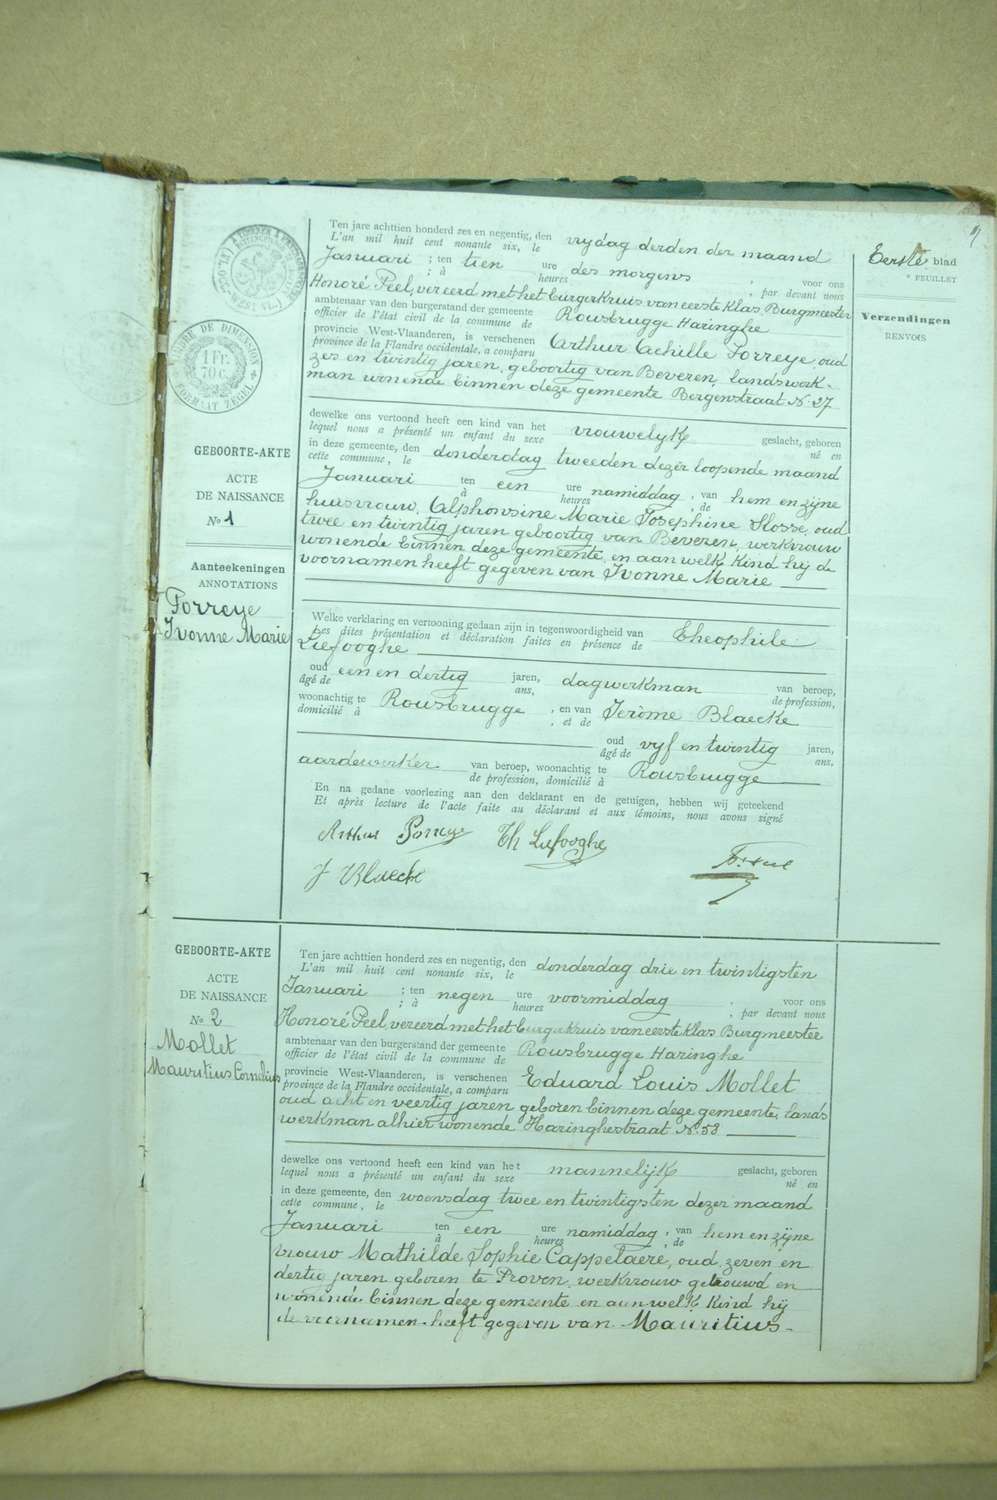 Eerste blad
" FEUILLET
Verzendingen
RENVOIS
TIMBRE DE DIMENSION
1 Fr.
70 c.
FORMAAT ZEGEL
GEBOORTE-AKTE
ACTE
DE NAISSANCE
No 1
Aanteekeningen
ANNOTATIONS
Porreye
Ivonne Marie
Ten jare achttien honderd zes en negentig, den
L'an mil huit cent nonante six, le
vrydag derden der maand
Januari ; ten tien ure des morgens , voor ons
; à heures , par devant nous
Honoré Peel, vereerd met het burgerkruis van eerste klas, Burgmeester
ambtenaar van den burgerstand der gemeente
officier de l'état civil de la commune de
Rousbrugge Haringhe
provincie West-Vlaanderen, is verschenen
province de la Flandre occidentale, a comparu
Arthur Achille Porreye, oud
zes en twintig jaren, geboortig van Beveren, landswerk-
man wonende binnen deze gemeente Bergenstraat No 27
dewelke ons vertoond heeft een kind van het vrouwelyk geslacht, geboren
lequel nous a présenté un enfant du sexe né en
in deze gemeente, den donderdag tweeden dezer loopende maand
cette commune, le
Januari ten een ure namiddag, van hem en zyne
à heures , de
huisvrouw, Alphonsine Marie Josephine Slosse, oud
twee en twintig jaren geboortig van Beveren, werkvrouw
wonende binnen deze gemeente, en aan welk kind hy de
voornamen heeft gegeven van Ivonne Marie
Welke verklaring en vertooning gedaan zijn in tegenwoordigheid van Theophile
Les dites présentation et déclaration faites en présence de
Liefooghe
oud een en dertig jaren, dagwerkman van beroep,
âgé de ans, de profession,
woonachtig te Rousbrugge , en van Jerôme Blaecke
domicilié à , et de
oud vyf en twintig jaren,
âgé de ans,
aardewerker van beroep, woonachtig te Rousbrugge
de profession, domicilié à
En na gedane voorlezing aan den deklarant en de getuigen, hebben wij geteekend
Et après lecture de l'acte faite au déclarant et aux témoins, nous avons signé
Arthur Porreye Th Liefooghe
J Blaecke
GEBOORTE-AKTE
ACTE
DE NAISSANCE
No 2
Mollet
Mauritius Cornelius
Ten jare achttien honderd zes en negentig, den
L'an mil huit cent nonante six, le
donderdag drie en twintigsten
Januari ; ten negen ure voormiddag , voor ons
; à heures , par devant nous
Honoré Peel, vereerd met het burgerkruis van eerste klas Burgmeester
ambtenaar van den burgerstand der gemeente
officier de l'état civil de la commune de
Rousbrugge Haringhe
provincie West-Vlaanderen, is verschenen
province de la Flandre occidentale, a comparu
Eduard Louis Mollet
oud acht en veertig jaren geboren binnen deze gemeente, lands
werkman alhier wonende Haringhestraat No 53
dewelke ons vertoond heeft een kind van het mannelijk geslacht, geboren
lequel nous a présenté un enfant du sexe né en
in deze gemeente, den woensdag twee en twintigsten dezer maand
cette commune, le
Januari ten een ure namiddag, van hem en zijne
à heures , de
vrouw Mathilde Sophie Cappelaere, oud zeven en
dertig jaren geboren te Proven, werkvrouw getrouwd en
wonende binnen deze gemeente en aan welk kind hij
de voornamen heeft gegeven van Mauritius-